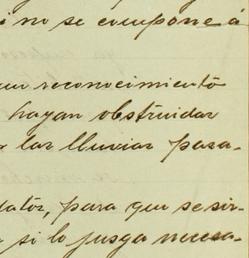 i no se compone á
un reconocimiento
hayan obstruidas
las lluvias pasa-
datos, para que se sir-
si lo juzga necesa-